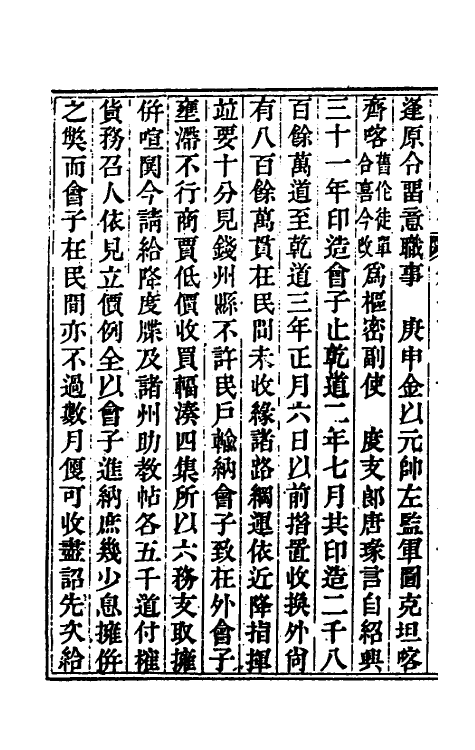 逢原令畱意職事　庚申金以元帥左監軍圖克坦喀
齊喀舊伦徒單合喜今改爲樞密副使　度支郎唐瑑言自紹興
三十一年印造會子止乾道二年七月共印造二千八
百餘萬道至乾道三年正月六日以前措置收換外尚
有八百餘萬貫在民間未收緣諸路綱運依近降指揮
竝要十分見錢州縣不許民戸輸納會子致在外會子
壅滯不行商賈低價收買輻湊四集所以六務支取擁
倂喧鬨今請給降度牒及諸州助教帖各五千道付榷
貨務召人依見立價例全以會子進納庶幾少息擁倂
之獘而會子在民間亦不過數月便可收盡詔先次給